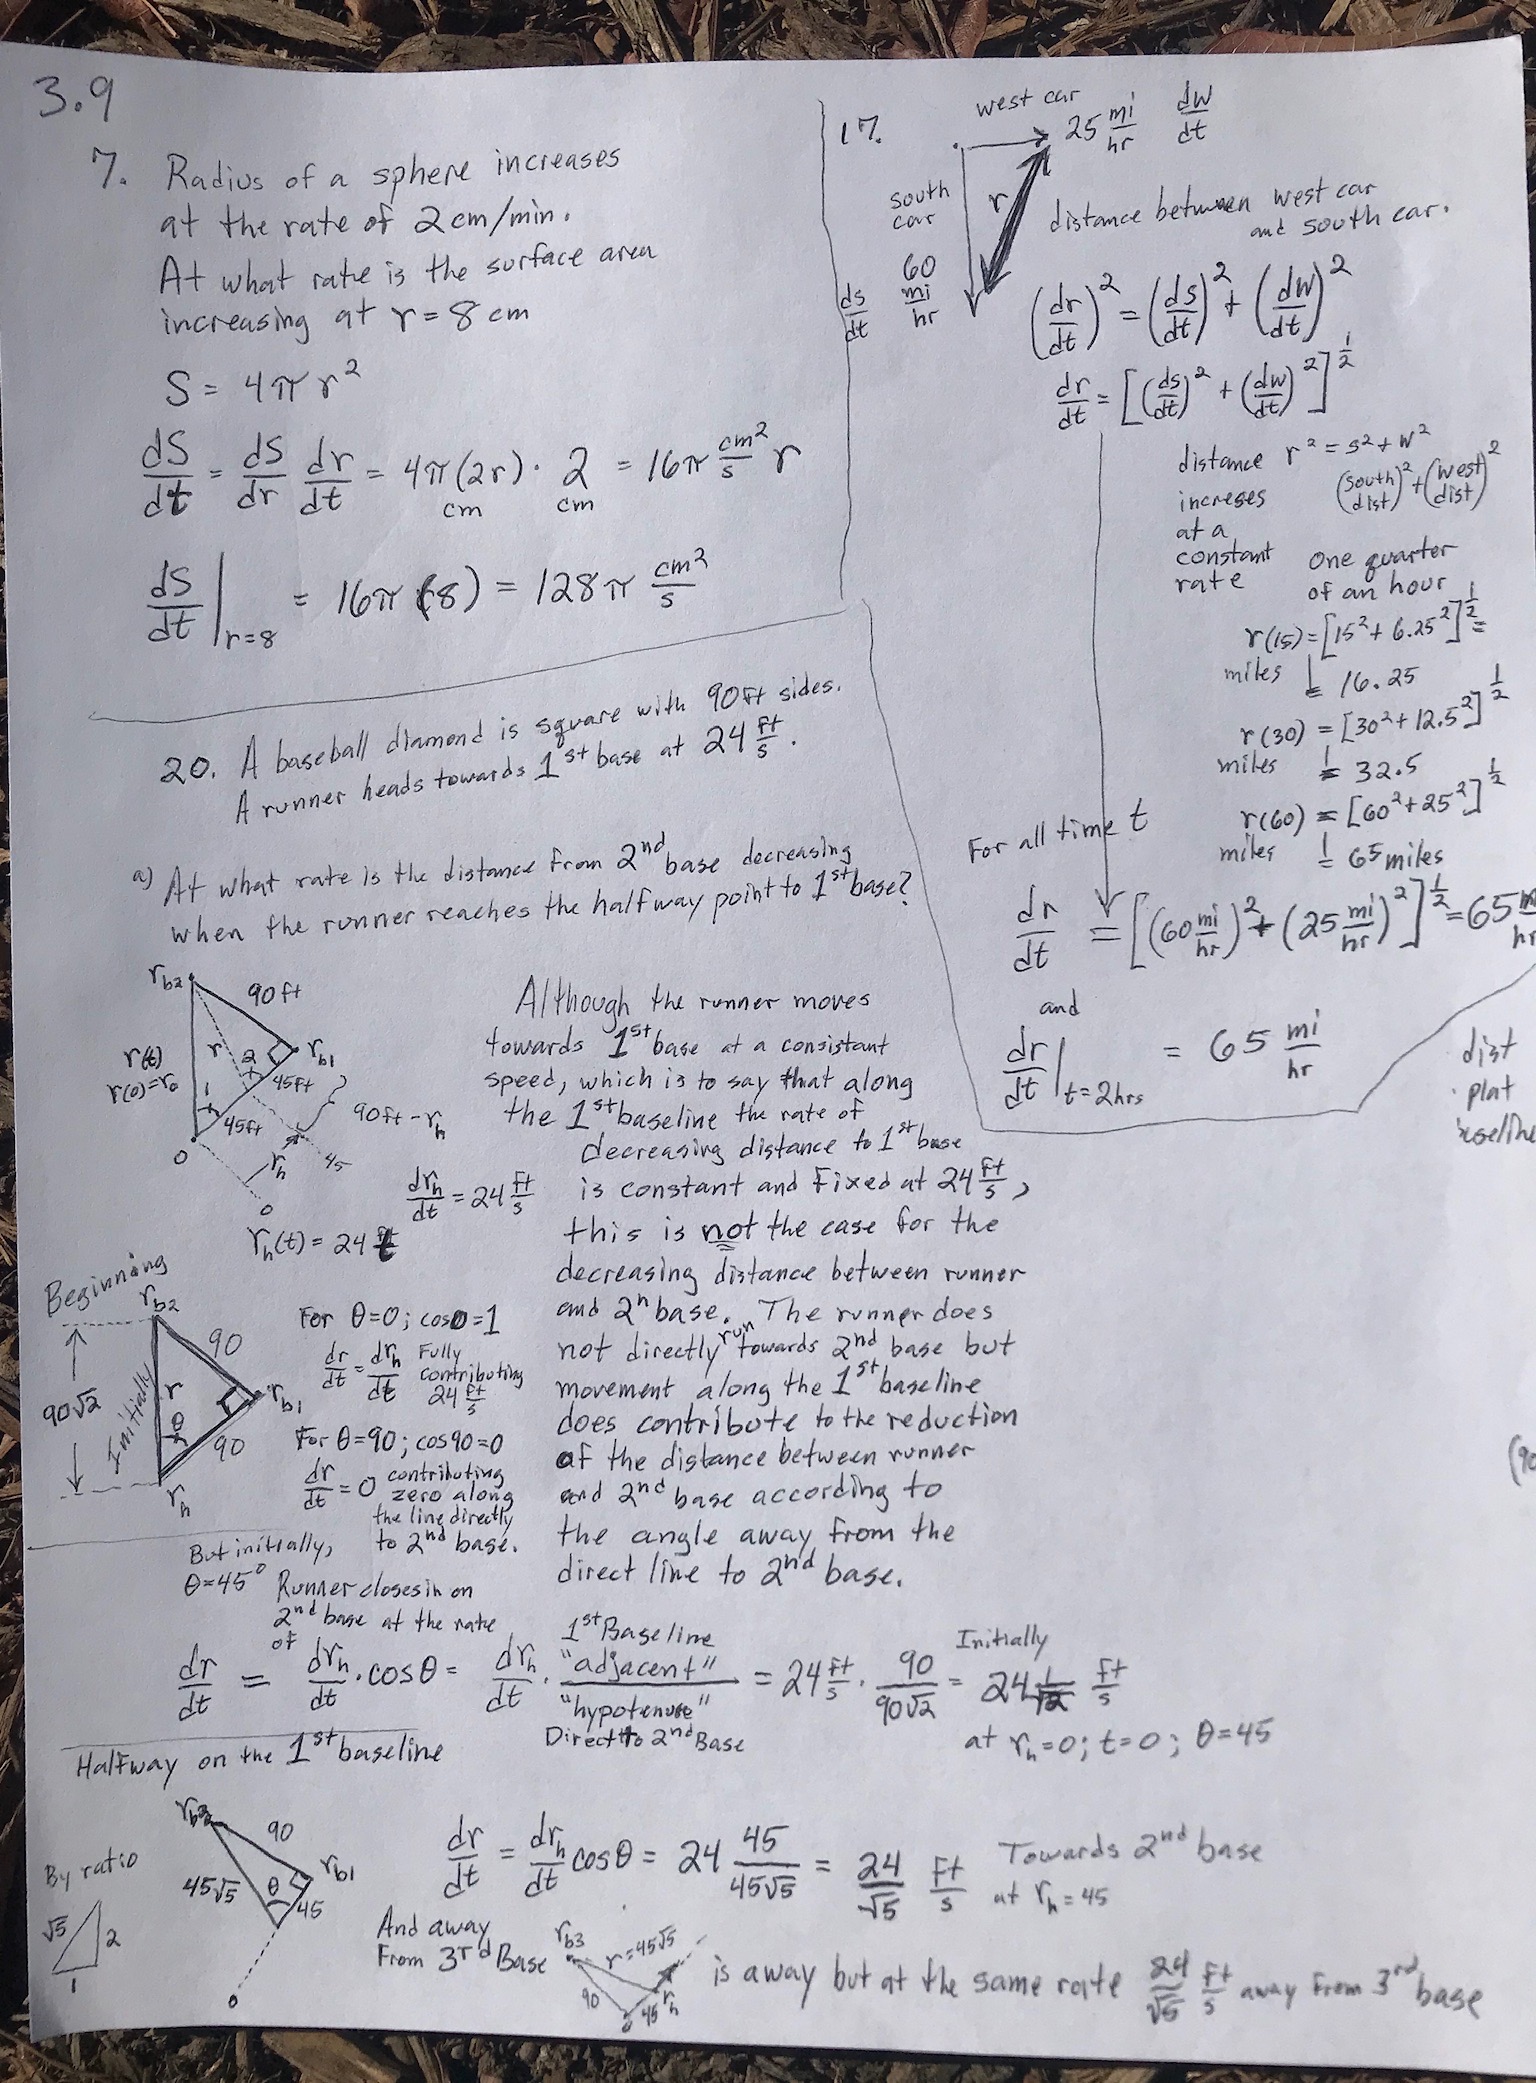 3.9
7. Radius of a sphere increases
at the rate of 2 cm/min.
At what rate is the surface area
increasing at r = 8 cm
S = 4π r²
dS/dt = dS/dr dr/dt = 4π(2r) · 2 = 16π cm²/s r
cm cm
dS/dt | r=8 = 16π (8) = 128π cm²/s
17.
west car
25 mi/hr dw/dt
south car
r
60 mi/hr
ds/dt
distance between west car
and south car.
(dr/dt)² = (ds/dt)² + (dw/dt)²
dr/dt = [(ds/dt)² + (dw/dt)²]^1/2
distance r² = s² + w²
increses (south dist)² + (west dist)²
at a
constant
rate
one quarter
of an hour
r(15) = [15² + 6.25²]^1/2 =
miles = 16.25
r(30) = [30² + 12.5²]^1/2
miles = 32.5
r(60) = [60² + 25²]^1/2
miles = 65 miles
For all time t
dr/dt = [(60 mi/hr)² + (25 mi/hr)²]^1/2 = 65 mi/hr
and
dr/dt | t=2hrs = 65 mi/hr
dist
plat
baseline
(90
20. A baseball diamond is square with 90 ft sides.
A runner heads towards 1st base at 24 ft/s.
a) At what rate is the distance from 2nd base decreasing
when the runner reaches the halfway point to 1st base?
rb2
90 ft
r(t)
r(0)=r₀
r
2
rb1
45ft
1
45ft
90ft - rh
0
rh
45
0
drh/dt = 24 ft/s
rh(t) = 24 t
Although the runner moves
towards 1st base at a consistant
speed, which is to say that along
the 1st baseline the rate of
decreasing distance to 1st base
is constant and fixed at 24 ft/s,
this is not the case for the
decreasing distance between runner
and 2n base. The runner does
not directly run towards 2nd base but
movement along the 1st baseline
does contribute to the reduction
of the distance between runner
and 2nd base according to
the angle away from the
direct line to 2nd base.
Beginning
rb2
90
90√2
Initially
r
θ
rb1
90
rh
For θ=0; cos0=1
dr/dt = drh/dt Fully
contributing
24 ft/s
For θ=90; cos90=0
dr/dt = 0 contributing
zero along
the line directly
to 2nd base.
But initially,
θ=45° Runner closes in on
2nd base at the rate
of
dr/dt = drh/dt · cosθ = drh/dt · 1st Baseline "adjacent" / "hypotenuse" Direct to 2nd Base = 24 ft/s · 90/90√2 = Initially 24 1/√2 ft/s
at rh=0; t=0; θ=45
Halfway on the 1st baseline
rb2
90
By ratio
45√5
θ
rb1
45
√5
2
1
0
dr/dt = drh/dt cosθ = 24 45/45√5 = 24/√5 ft/s Towards 2nd base
at rh = 45
And away
From 3rd Base
rb3
r=45√5
90
rh
0
45
is away but at the same rate 24/√5 ft/s away from 3rd base